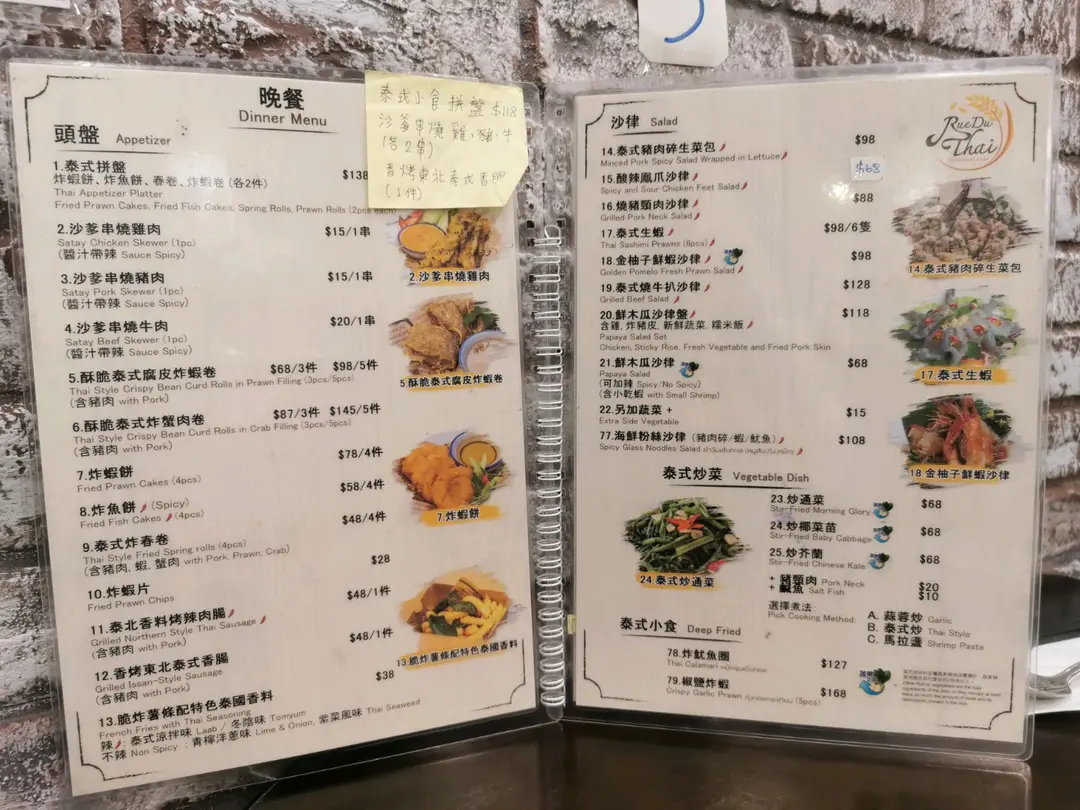 晚餐
Dinner Menu
泰式小食拼盤 $118
沙爹串燒雞、豬、牛
(各2串)
香烤東北泰式香腸
(1件)
頭盤 Appetizer
1.泰式拼盤 $138
炸蝦餅、炸魚餅、春卷、炸蝦卷 (各2件)
Thai Appetizer Platter
Fried Prawn Cakes, Fried Fish Cakes, Spring Rolls, Prawn Rolls (2pcs each)
2.沙爹串燒雞肉 $15/1串
Satay Chicken Skewer (1pc)
(醬汁帶辣 Sauce Spicy)
3.沙爹串燒豬肉 $15/1串
Satay Pork Skewer (1pc)
(醬汁帶辣 Sauce Spicy)
4.沙爹串燒牛肉 $20/1串
Satay Beef Skewer (1pc)
(醬汁帶辣 Sauce Spicy)
5.酥脆泰式腐皮炸蝦卷 $68/3件 $98/5件
Thai Style Crispy Bean Curd Rolls in Prawn Filling (3pcs/5pcs)
(含豬肉 with Pork)
6.酥脆泰式炸蟹肉卷 $87/3件 $145/5件
Thai Style Crispy Bean Curd Rolls in Crab Filling (3pcs/5pcs)
(含豬肉 with Pork)
7.炸蝦餅 $78/4件
Fried Prawn Cakes (4pcs)
8.炸魚餅 (Spicy) $58/4件
Fried Fish Cakes (4pcs)
9.泰式炸春卷 $48/4件
Thai Style Fried Spring rolls (4pcs)
(含豬肉, 蝦, 蟹肉 with Pork, Prawn, Crab)
10.炸蝦片 $28
Fried Prawn Chips
11.泰北香料烤辣肉腸 $48/1件
Grilled Northern Style Thai Sausage
(含豬肉 with Pork)
12.香烤東北泰式香腸 $48/1件
Grilled Issan-Style Sausage
(含豬肉 with Pork)
13.脆炸薯條配特色泰國香料 $38
French Fries with Thai Seasoning
辣: 泰式涼拌味 Laab / 冬陰味 Tomyum
不辣 Non Spicy : 青檸洋蔥味 Lime & Onion, 紫菜風味 Thai Seaweed
2.沙爹串燒雞肉
5.酥脆泰式腐皮炸蝦卷
7.炸蝦餅
13.脆炸薯條配特色泰國香料
RueDu
Thai
沙律 Salad
14.泰式豬肉碎生菜包 $98
Minced Pork Spicy Salad Wrapped in Lettuce
15.酸辣鳳爪沙律 $68
Spicy and Sour Chicken Feet Salad
16.燒豬頸肉沙律 $88
Grilled Pork Neck Salad
17.泰式生蝦 $98/6隻
Thai Sashimi Prawns (6pcs)
18.金柚子鮮蝦沙律 $98
Golden Pomelo Fresh Prawn Salad
19.泰式燒牛扒沙律 $128
Grilled Beef Salad
20.鮮木瓜沙律盤 $118
含雞, 炸豬皮, 新鮮蔬菜, 糯米飯
Papaya Salad Set
Chicken, Sticky Rice, Fresh Vegetable and Fried Pork Skin
21.鮮木瓜沙律 $68
Papaya Salad
(可加辣 Spicy/No Spicy)
(含小乾蝦 with Small Shrimp)
22.另加蔬菜 + $15
Extra Side Vegetable
77.海鮮粉絲沙律 (豬肉碎/蝦/魷魚) $108
Spicy Glass Noodles Salad
14.泰式豬肉碎生菜包
17.泰式生蝦
18.金柚子鮮蝦沙律
泰式炒菜 Vegetable Dish
23.炒通菜 $68
Stir-Fried Morning Glory
24.炒椰菜苗 $68
Stir-Fried Baby Cabbage
25.炒芥蘭 $68
Stir-Fried Chinese Kale
+ 豬頸肉 Pork Neck $20
+ 鹹魚 Salt Fish $10
選擇煮法:
Pick Cooking Method:
A. 蒜蓉炒 Garlic
B. 泰式炒 Thai Style
C. 馬拉盞 Shrimp Paste
24.泰式炒通菜
泰式小食 Deep Fried
78.炸魷魚圈 $127
Thai Calamari
79.椒鹽炸蝦 $168
Crispy Garlic Prawn (5pcs)